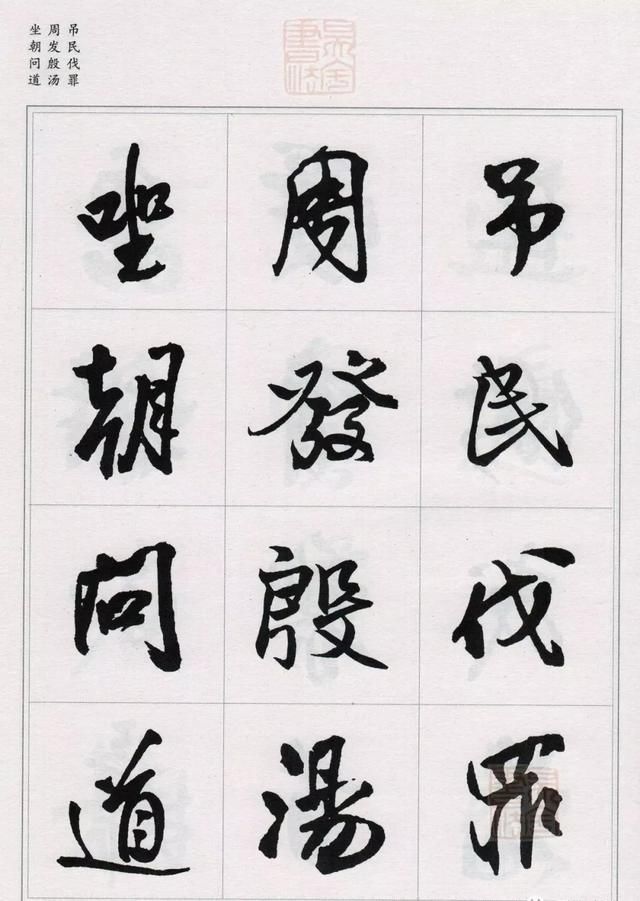 吊民伐罪
周发殷汤
坐朝问道
吊民伐罪
周發殷湯
坐朝問道